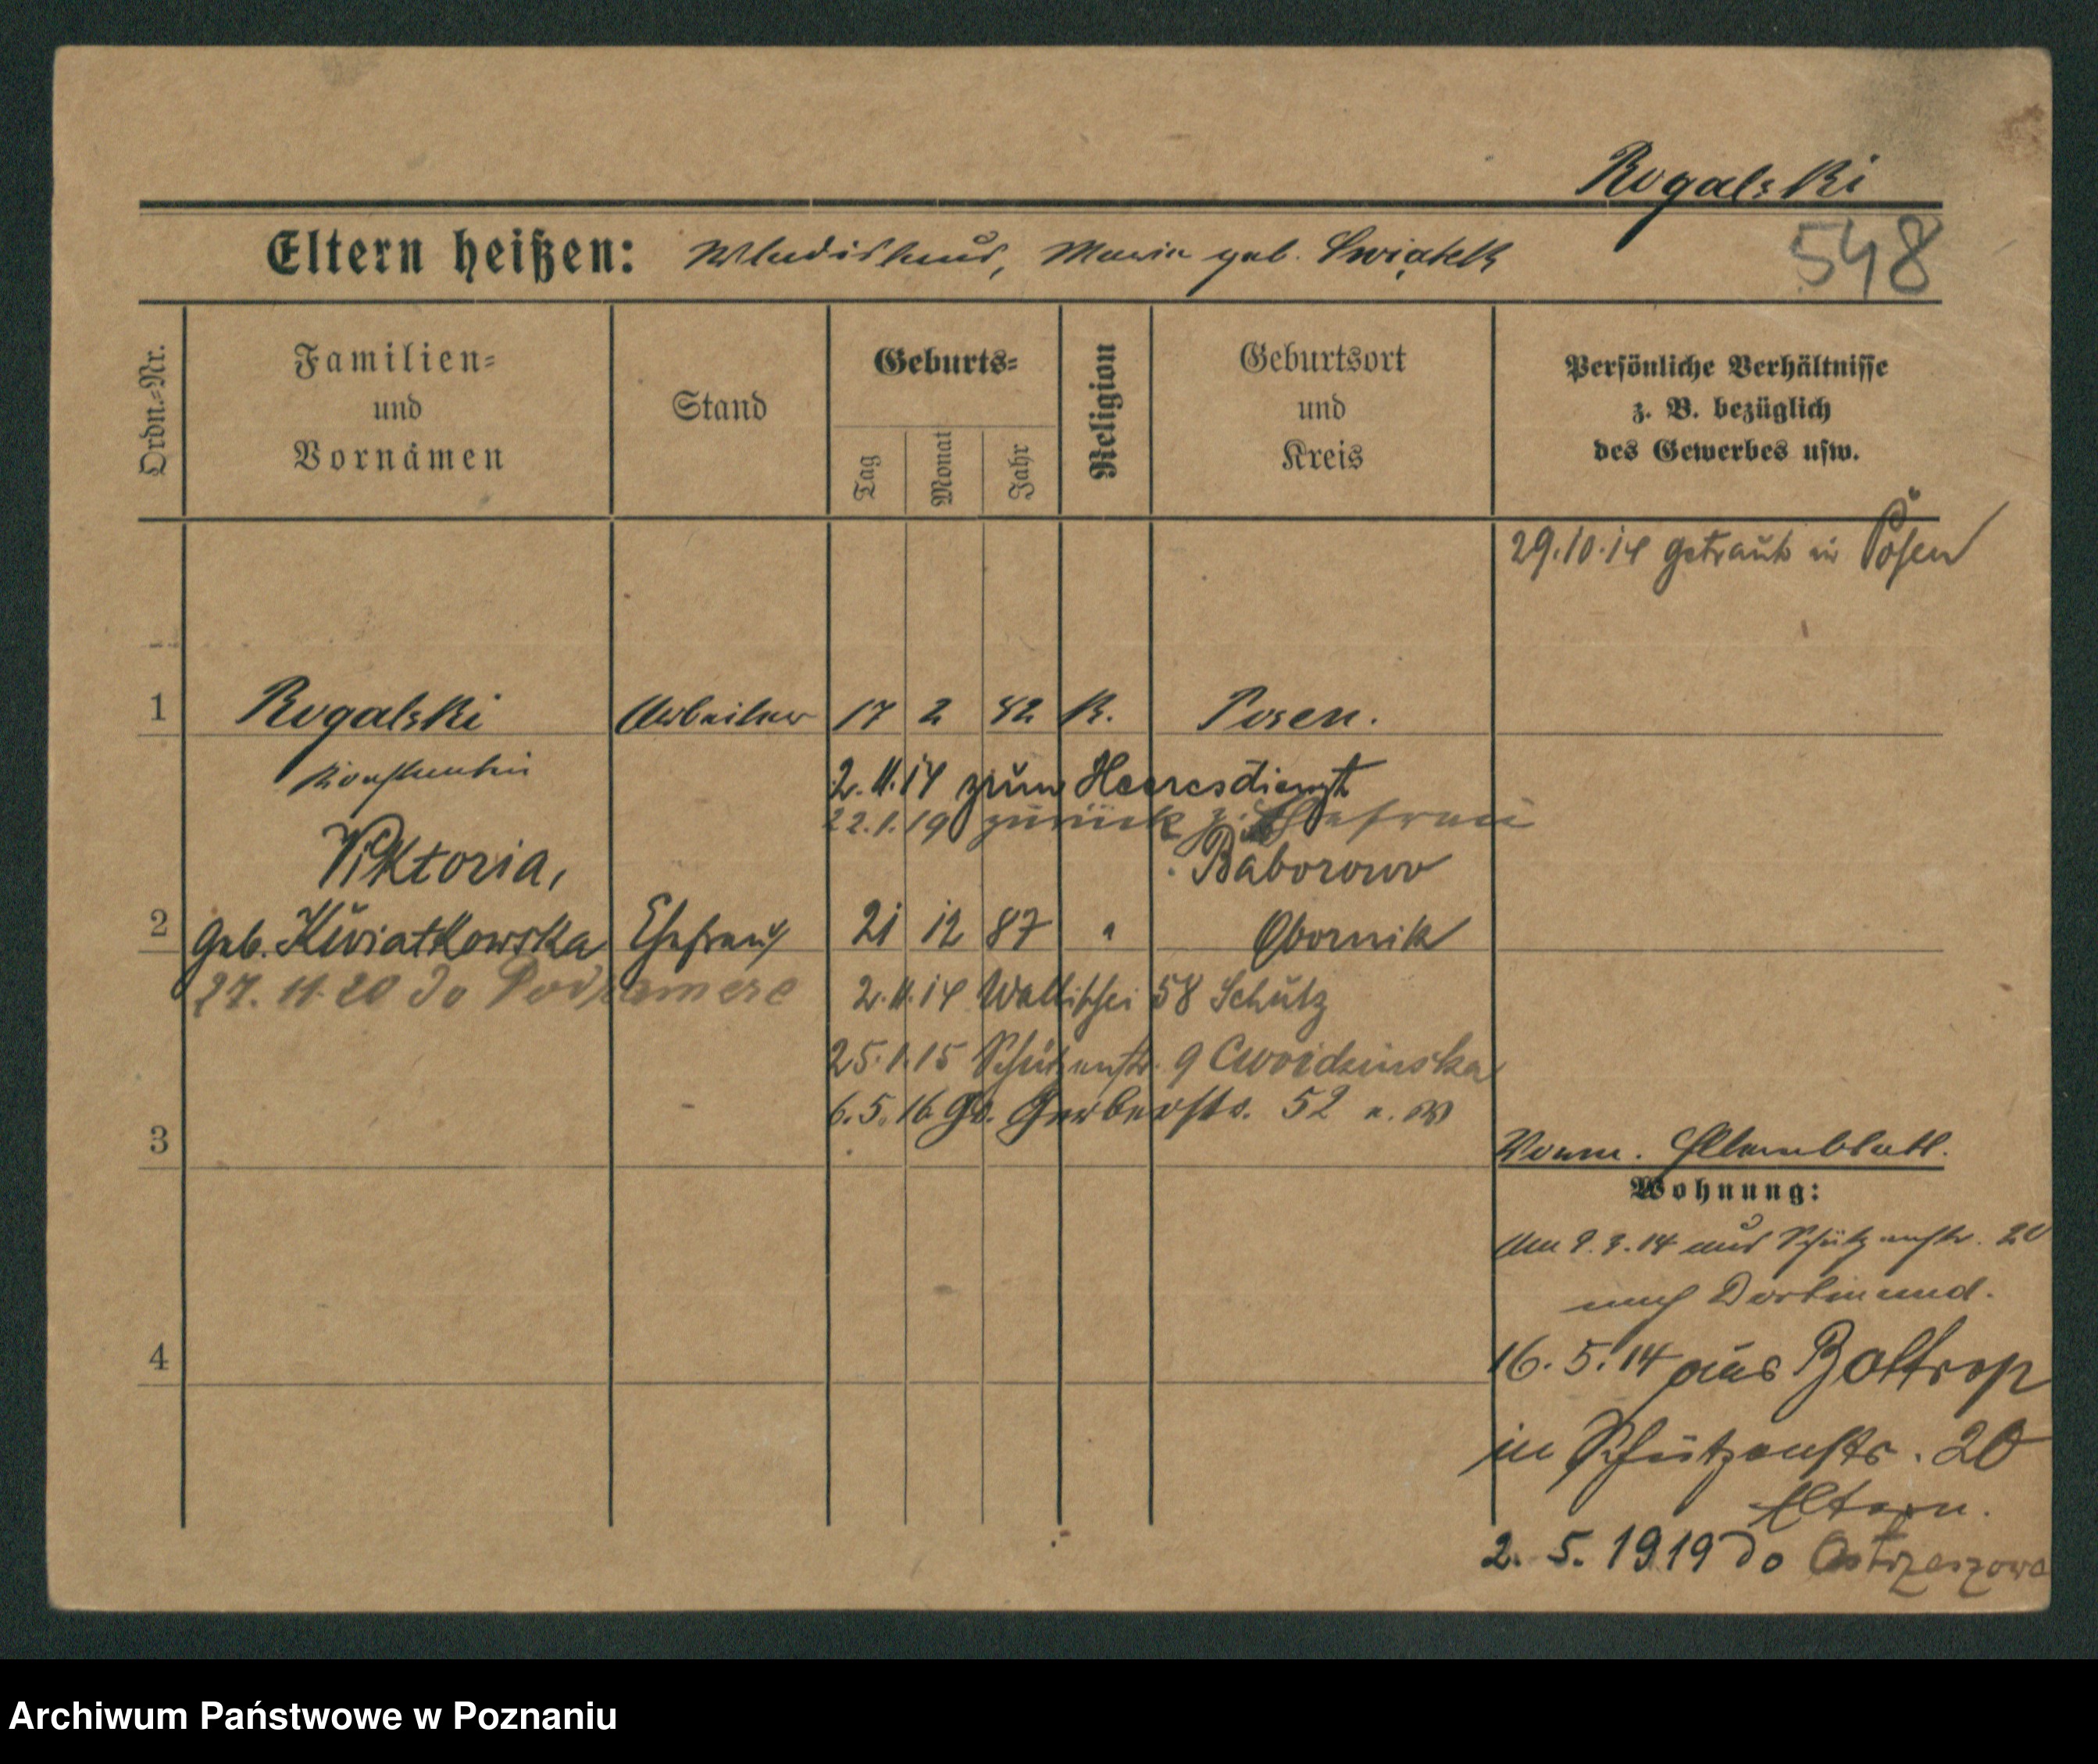 Rogalski
Eltern heißen: Wladislaus, Maria geb. Swiątek
548
Ordn.-Nr.
Familien- und Vornamen
Stand
Geburts-
Tag
Monat
Jahr
Religion
Geburtsort und Kreis
Persönliche Verhältnisse
z. B. bezüglich
des Gewerbes usw.
29.10.14 getraut in Posen
1 Rogalski Arbeiter 17 2 92 K. Posen.
Konstantin
2.11.14 zum Heeresdienst
22.1.19 zurück z. Ehefrau
Viktoria, Baborowo
2 geb. Kwiatkowska Ehefrau 21 12 87 " Obornik
27.11.20 do
2.11.14 Wallischei 58 Schütz
25.1.15 Schützenstr. 9 Cwoidzinska
6.5.16 Gr. Gerberstr. 52
3
Vorm. Elternblatt.
Wohnung:
Am 9.3.14 aus Schützenstr. 20
nach Dortmund.
4
16.5.14 aus Bottrop
in Schützenstr. 20
Eltern.
2.5.1919 do Ostrzeszowa
Archiwum Państwowe w Poznaniu